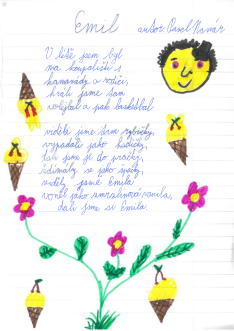 Emil
autor: Pavel
V létě jsem byl
na koupališti s
kamarády a rodiči,
hráli jsme tam
volejbal a pak basketbal.
viděli jsme tam rybičky,
vypadali jako kuličky,
dali jsme je do pračky,
ždímaly se jako špačky,
viděly jsme Emila
voněl jako zmrzlinová vanila,
dali jsme si Emila